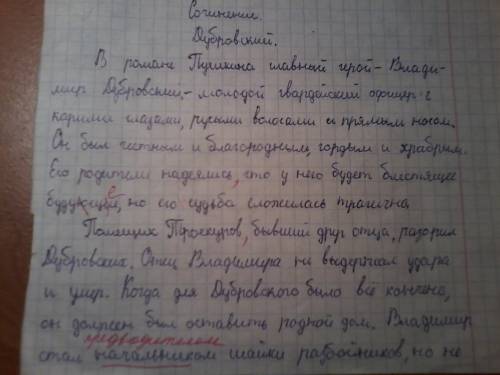 Сочинение.
Дубровский.
В романе Пушкина главный герой - Влади-
мир Дубровский, - молодой гвардейский офицер с
карими глазами, русыми волосами и прямым носом.
Он был честным и благородным, гордым и храбрым.
Его родители надеялись, что у него будет блестящее
будующее, но его судьба сложилась трагична.
Помещик Троекуров, бывший друг отца, разорил
Дубровских. Отец Владимира не выдержал удара
и умер. Когда для Дубровского было всё кончено,
он должен был оставить родной дом. Владимир
предводителем
стал начальником шайки разбойников, но не